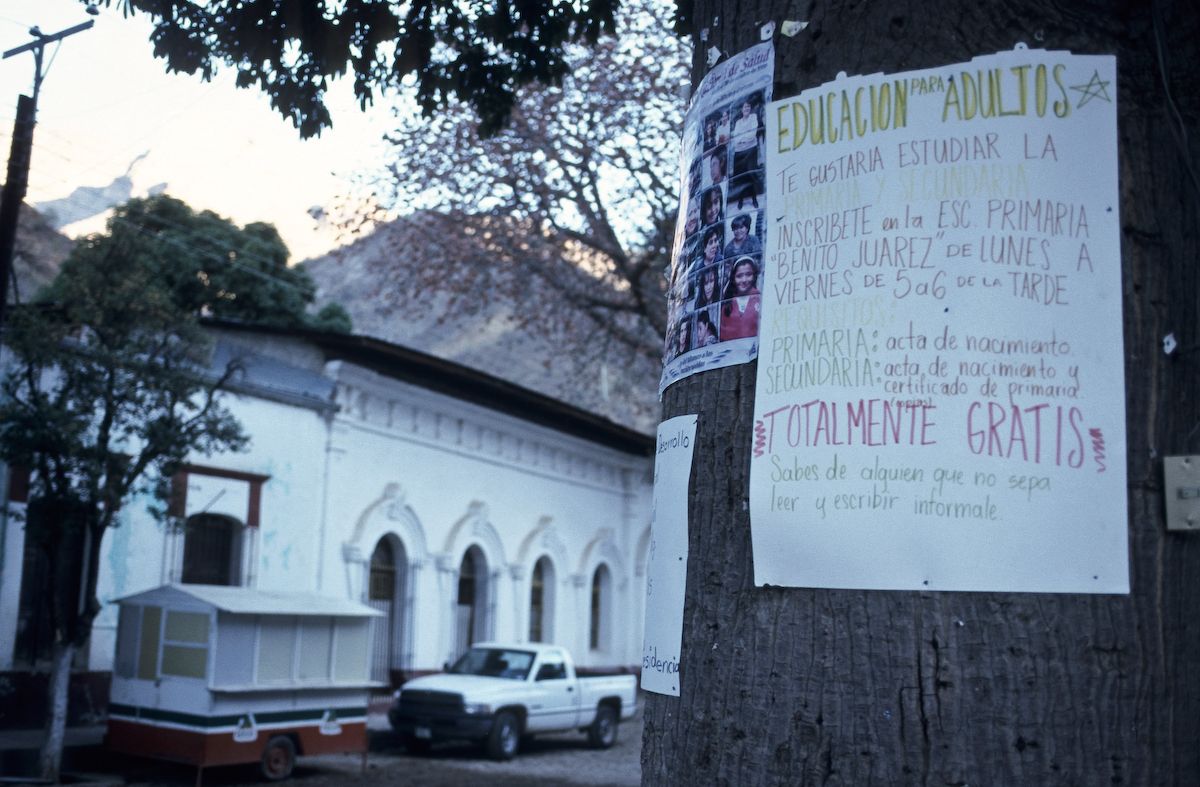 de Salud
EDUCACION PARA ADULTOS
TE GUSTARIA ESTUDIAR LA
PRIMARIA Y SECUNDARIA
INSCRIBETE en la ESC. PRIMARIA
"BENITO JUAREZ" DE LUNES A
VIERNES DE 5 a 6 DE LA TARDE
REQUISITOS:
PRIMARIA: acta de nacimiento.
SECUNDARIA: acta de nacimiento y
certificado de primaria
(copias)
TOTALMENTE GRATIS
Sabes de alguien que no sepa
leer y escribir informale.
Desarrollo
esidencia